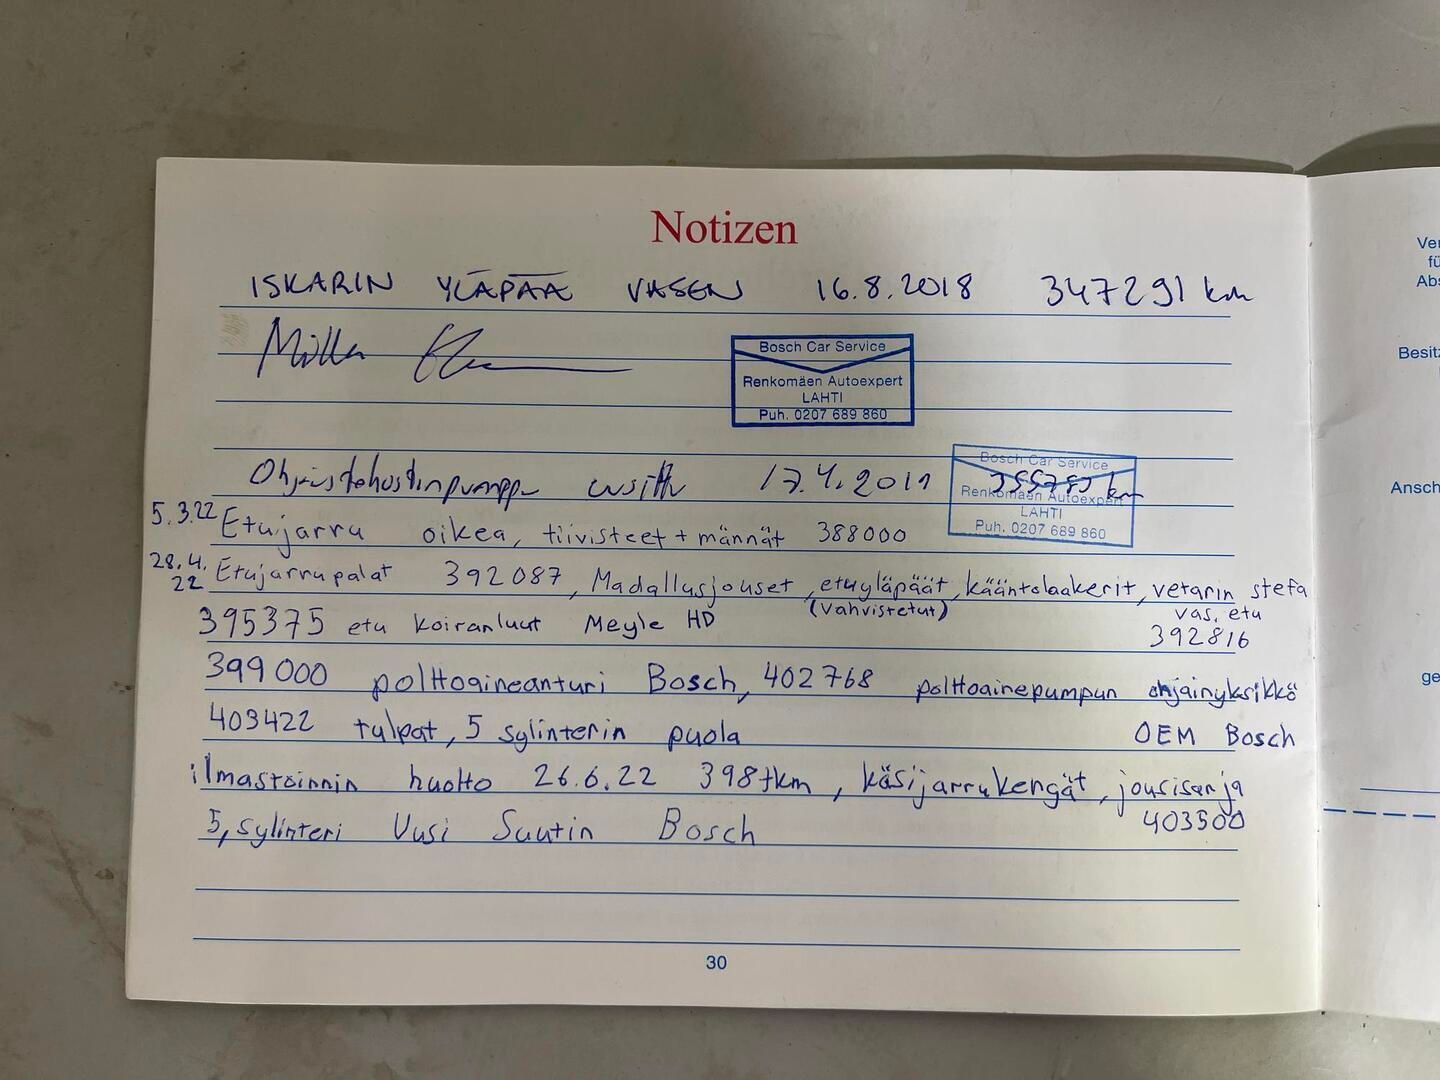 Notizen
ISKARIN YLÄPÄÄ VASEN 16.8.2018 347291 km
Bosch Car Service
Renkomäen Autoexpert
LAHTI
Puh. 0207 689 860
Ohjaustehostinpumppu 17.4.2019 355787 km
Bosch Car Service
Renkomäen Autoexpert
LAHTI
Puh. 0207 689 860
5.3.22 Etujarru oikea, tiivisteet + männät 388000
28.4.22 Etujarrupalat 392087, Madallusjouset, etuyläpäät, kääntölaakerit, vetarin stefa
(vahvistetut) vas. etu
395375 etu koiranluut Meyle HD 392816
399000 polttoaineanturi Bosch, 402768 polttoainepumpun ohjainyksikkö
403422 tulpat, 5 sylinterin puola OEM Bosch
ilmastoinnin huolto 26.6.22 398tkm, käsijarrukengät, jousisarja
5, sylinteri Uusi Suutin Bosch 403500
30
Ver
fü
Abs
Besitz
Ansch
ge